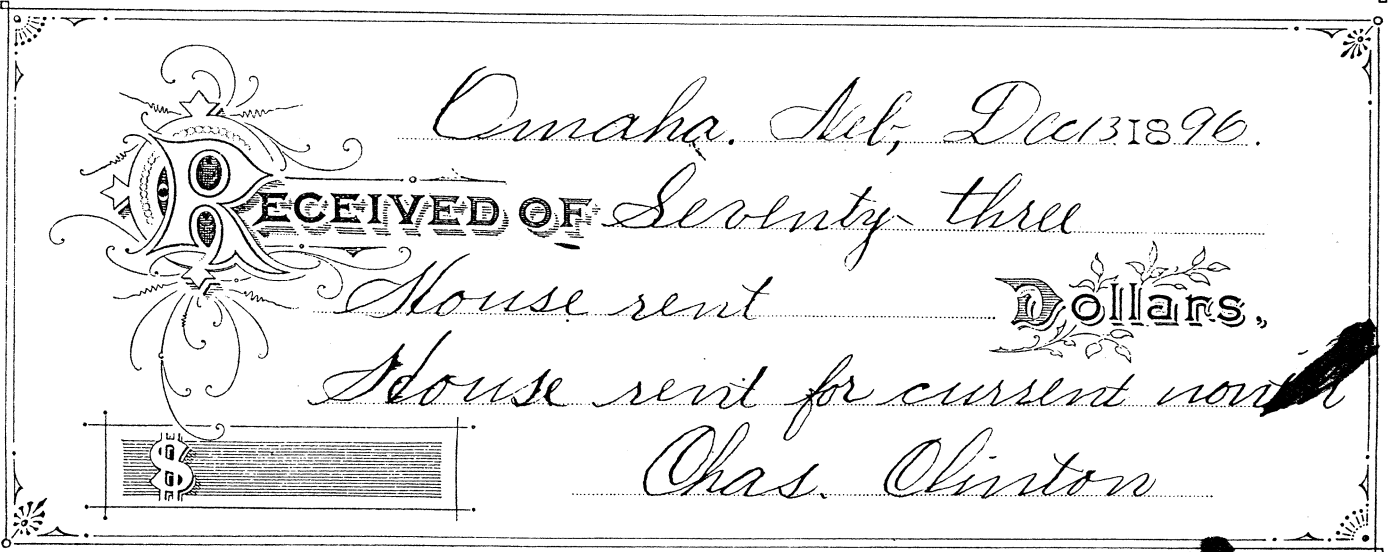 Omaha. Neb, Dec 13 1896.
RECEIVED OF Seventy three
House rent Dollars,
House rent for current
$ Chas. Clinton